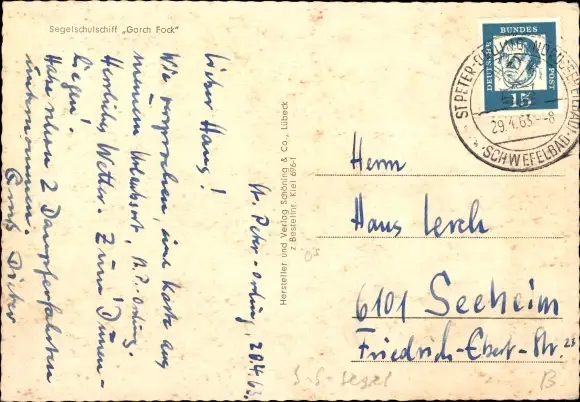 Segelschulschiff „Gorch Fock“
St. Peter-Ording, 28.4.63.
Lieber Hans!
Wie versprochen, eine Karte aus
meinem Urlaubsort, St. P.-Ording.
Herrliches Wetter. Zum Dünen-
liegen!
Habe schon 2 Dampferfahrten
unternommen.
Hersteller und Verlag Schöning & Co., Lübeck
z Bestellnr. Kiel
DEUTSCHE BUNDES POST
15
ST.PETER-ORDING
29.4.63-8
SCHWEFELBAD
Herrn
Hans Lerch
6101 Seeheim
Friedrich-Ebert-Str. 23
S-S-Segel
B